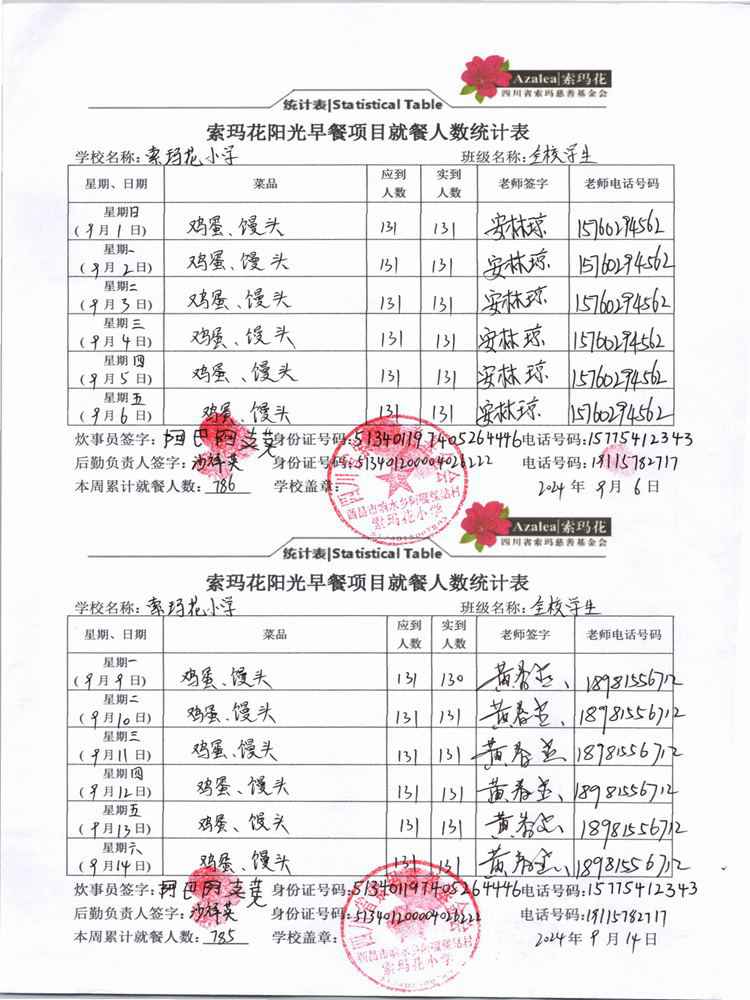 Azalea|索玛花
四川省索玛慈善基金会
统计表|Statistical Table
索玛花阳光早餐项目就餐人数统计表
学校名称：索玛花小学 班级名称：全校学生
星期、日期 菜品 应到人数 实到人数 老师签字 老师电话号码
星期日
(9月1日) 鸡蛋、馒头 131 131 安林琼 15760294562
星期一
(9月2日) 鸡蛋、馒头 131 131 安林琼 15760294562
星期二
(9月3日) 鸡蛋、馒头 131 131 安林琼 15760294562
星期三
(9月4日) 鸡蛋、馒头 131 131 安林琼 15760294562
星期四
(9月5日) 鸡蛋、馒头 131 131 安林琼 15760294562
星期五
(9月6日) 鸡蛋、馒头 131 131 安林琼 15760294562
炊事员签字： 身份证号码:513401197405264446电话号码:15775412343
后勤负责人签字： 身份证号码:513401200004026222 电话号码:18115782717
本周累计就餐人数：786 学校盖章： 2024年9月6日
索玛花小学
Azalea|索玛花
四川省索玛慈善基金会
统计表|Statistical Table
索玛花阳光早餐项目就餐人数统计表
学校名称：索玛花小学 班级名称：全校学生
星期、日期 菜品 应到人数 实到人数 老师签字 老师电话号码
星期一
(9月9日) 鸡蛋、馒头 131 130 18981556712
星期二
(9月10日) 鸡蛋、馒头 131 131 18981556712
星期三
(9月11日) 鸡蛋、馒头 131 131 18981556712
星期四
(9月12日) 鸡蛋、馒头 131 131 18981556712
星期五
(9月13日) 鸡蛋、馒头 131 131 18981556712
星期六
(9月14日) 鸡蛋、馒头 131 131 18981556712
炊事员签字： 身份证号码:513401197405264446电话号码:15775412343
后勤负责人签字： 身份证号码:513401200004026222 电话号码:18115782717
本周累计就餐人数：785 学校盖章： 2024年9月14日
索玛花小学